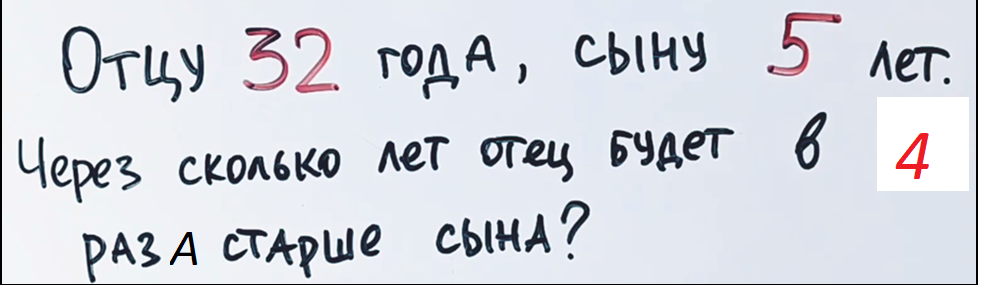 Отцу 32 года, сыну 5 лет.
Через сколько лет отец будет в 4
раза старше сына?